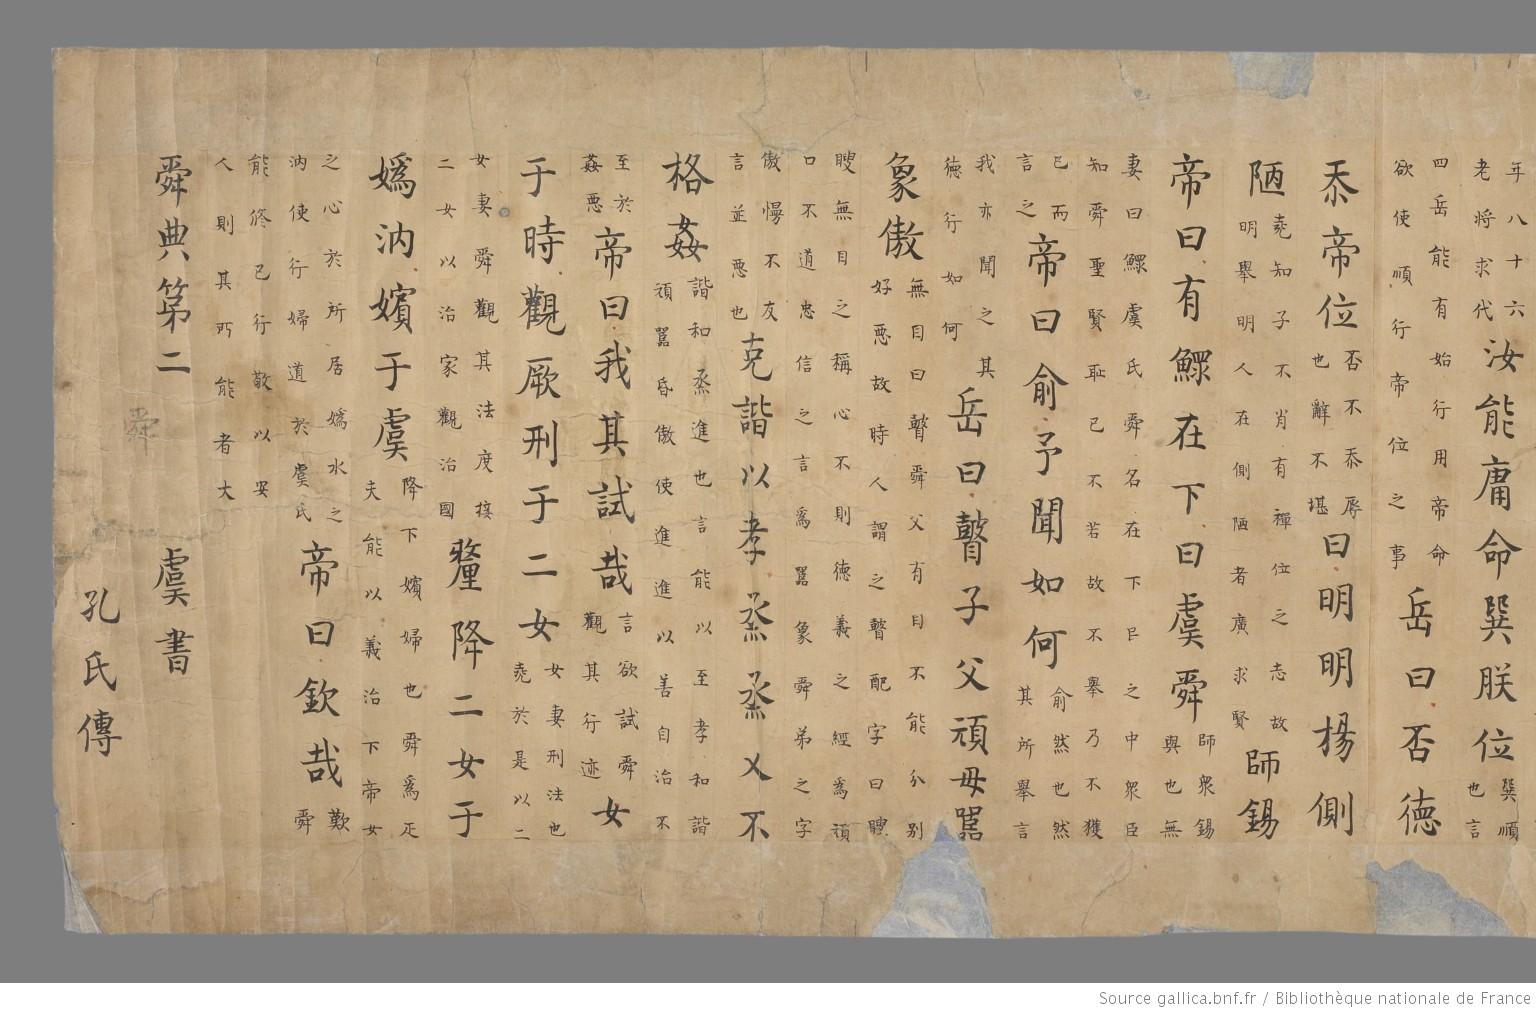 年八十六
老將求代
汝能庸命巽朕位
巽順
也言
四岳能有始行用帝命
欲使順行帝位之事
岳曰否德
忝帝位
否不忝辱
也辭不堪
曰明明揚側
陋
堯知子不肖有禪位之志故
明舉明人在側陋者廣求賢
師錫
帝曰有鰥在下曰虞舜
師衆錫
與也無
妻曰鰥虞氏舜名在下㠯之中衆臣
知舜聖賢恥己不若故不舉乃不獲
已而
言之
帝曰俞予聞如何
俞然也然
其所舉言
我亦聞之其
德行如何
岳曰瞽子父頑母嚚
象傲
無目曰瞽舜父有目不能分別
好惡故時人謂之瞽配字曰瞍
瞍無目之稱心不則德義之經爲頑
口不道忠信之言爲嚚象舜弟之字
傲慢不友
言並惡也
克諧以孝烝烝乂不
格姦
諧和烝進也言能以至孝和諧
頑嚚昏傲使進進以善自治不
至於
姦惡
帝曰我其試哉
言欲試舜
觀其行迹
女
于時觀厥刑于二女
女妻刑法也
堯於是以二
女妻舜觀其法度接
二女以治家觀治國
釐降二女于
嬀汭嬪于虞
降下嬪婦也舜爲疋
夫能以義治下帝女
之心於所居嬀水之
汭使行婦道於虞氏
帝曰欽哉
歎
舜
能修已行敬以安
人則其所能者大
舜典第二
虞書
舜
孔氏傳
Source gallica.bnf.fr / Bibliothèque nationale de France